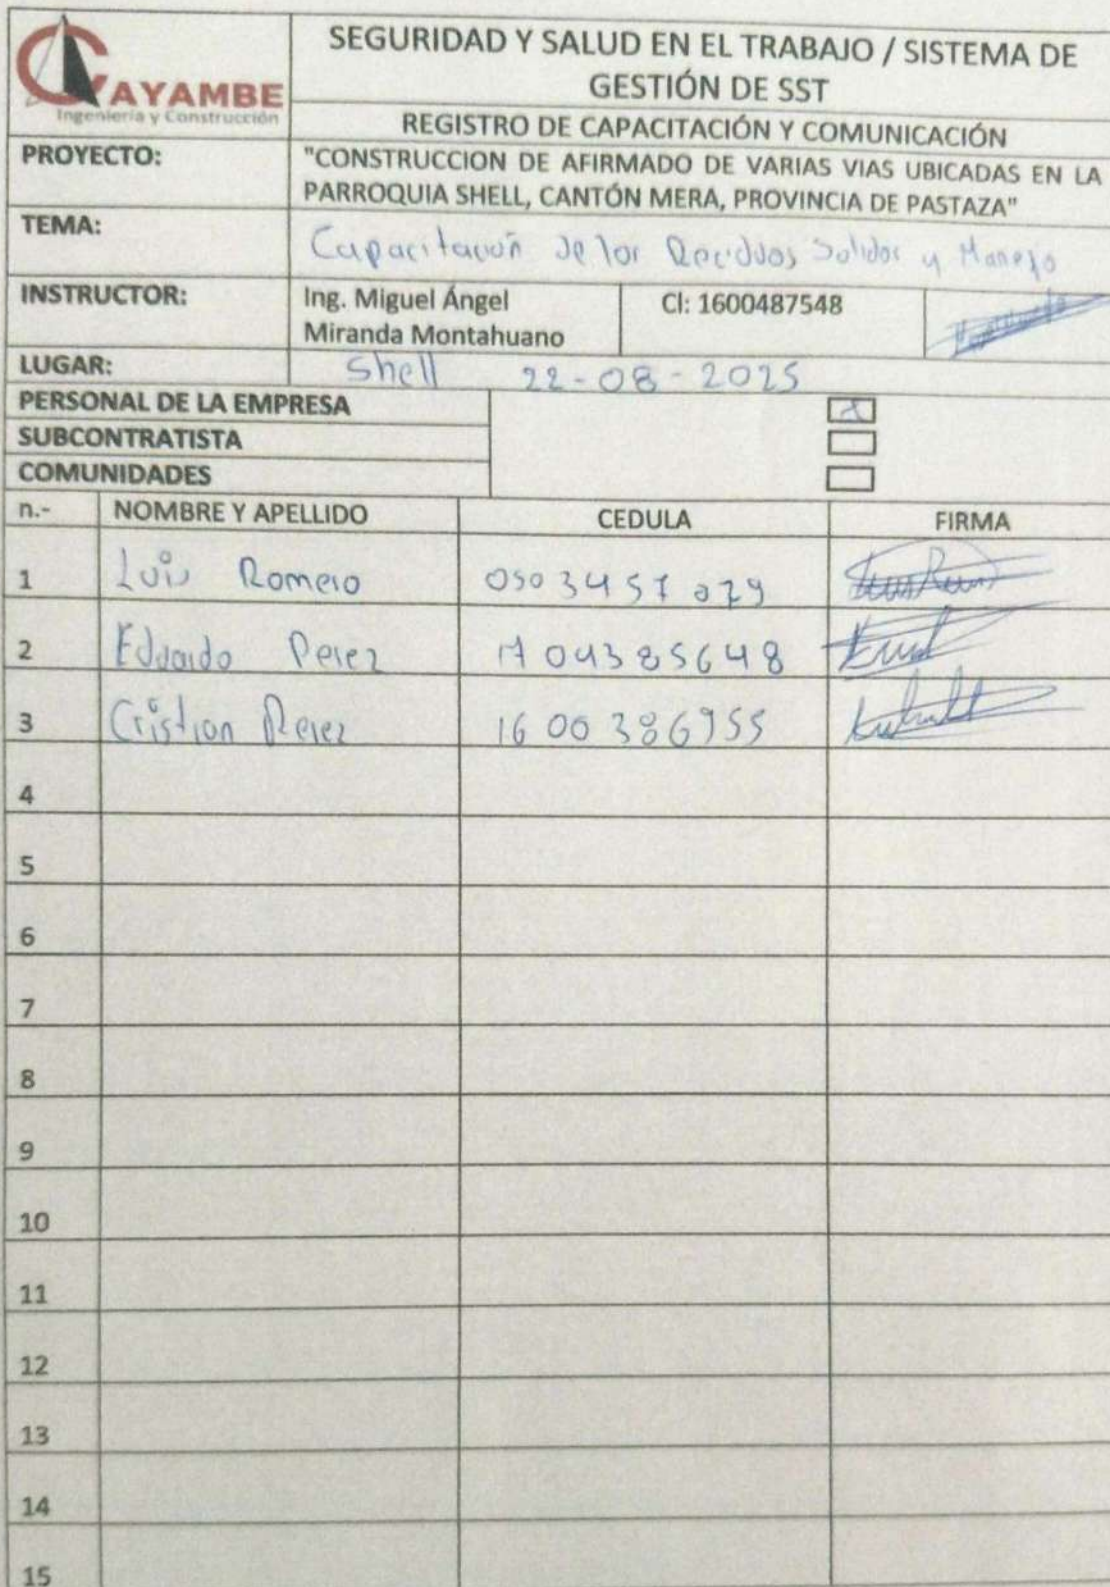 CAYAMBE
Ingeniería y Construcción
SEGURIDAD Y SALUD EN EL TRABAJO / SISTEMA DE
GESTIÓN DE SST
REGISTRO DE CAPACITACIÓN Y COMUNICACIÓN
PROYECTO:
"CONSTRUCCION DE AFIRMADO DE VARIAS VIAS UBICADAS EN LA
PARROQUIA SHELL, CANTÓN MERA, PROVINCIA DE PASTAZA"
TEMA:
Capacitación de los Residuos Solidos y Manejo
INSTRUCTOR:
Ing. Miguel Ángel
Miranda Montahuano
CI: 1600487548
LUGAR:
Shell 22-08-2025
PERSONAL DE LA EMPRESA X
SUBCONTRATISTA
COMUNIDADES
n.- NOMBRE Y APELLIDO CEDULA FIRMA
1 Luis Romero 0503457079
2 Eduardo Perez 1704385648
3 Cristian Perez 1600386955
4
5
6
7
8
9
10
11
12
13
14
15